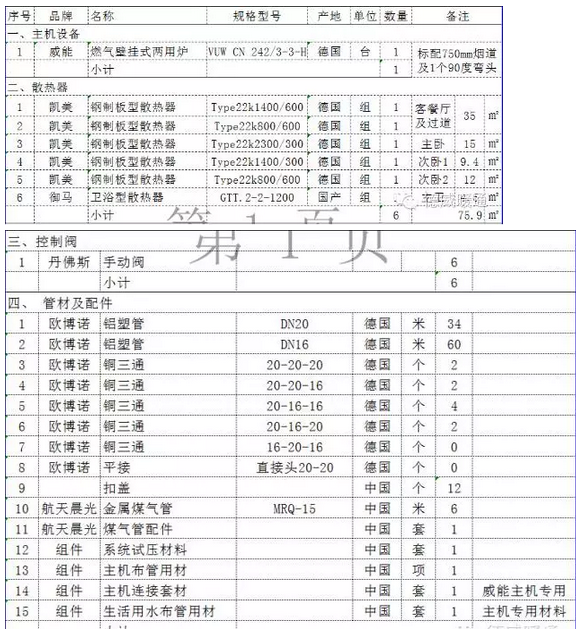 序号 品牌 名称 规格型号 产地 单位 数量 备注
一、主机设备
1 威能 燃气壁挂式两用炉 VUW CN 242/3-3-H 德国 台 1 标配750mm烟道
小计 1 及1个90度弯头
二、散热器
1 凯美 钢制板型散热器 Type22k1400/600 德国 组 1 客餐厅 35 ㎡
2 凯美 钢制板型散热器 Type22k800/600 德国 组 1 及过道
3 凯美 钢制板型散热器 Type22k2300/300 德国 组 1 主卧 15 ㎡
4 凯美 钢制板型散热器 Type22k1400/300 德国 组 1 次卧1 9.4 ㎡
5 凯美 钢制板型散热器 Type22k800/600 德国 组 1 次卧2 12 ㎡
6 御马 卫浴型散热器 GTT.2-2-1200 国产 组 1 主卫 ㎡
小计 6 75.9 ㎡
第 1 页
三、控制阀
1 丹佛斯 手动阀 6
小计 6
四、 管材及配件
1 欧博诺 铝塑管 DN20 德国 米 34
2 欧博诺 铝塑管 DN16 德国 米 60
3 欧博诺 铜三通 20-20-20 德国 个 2
4 欧博诺 铜三通 20-20-16 德国 个 2
5 欧博诺 铜三通 20-16-16 德国 个 4
6 欧博诺 铜三通 20-16-20 德国 个 2
7 欧博诺 铜三通 16-20-16 德国 个 0
8 欧博诺 平接 直接头20-20 德国 个 0
9 扣盖 中国 个 12
10 航天晨光 金属煤气管 MRQ-15 中国 米 6
11 航天晨光 煤气管配件 中国 套 1
12 组件 系统试压材料 中国 套 1
13 组件 主机布管用材 中国 项 1
14 组件 主机连接套材 中国 套 1 威能主机专用
15 组件 生活用水布管用材 中国 套 1 主机专用材料